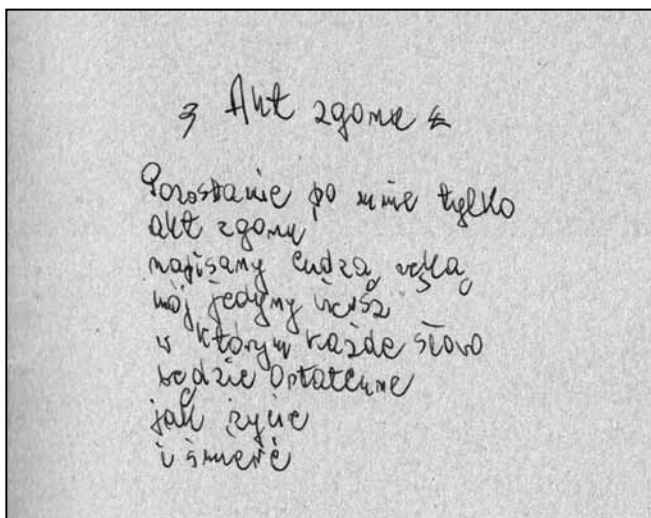 Akt zgonu
Pozostanie po mnie tylko
akt zgonu
napisany cudzą ręką
mój jedyny wiersz
w którym każde słowo
będzie ostateczne
jak życie
i śmierć